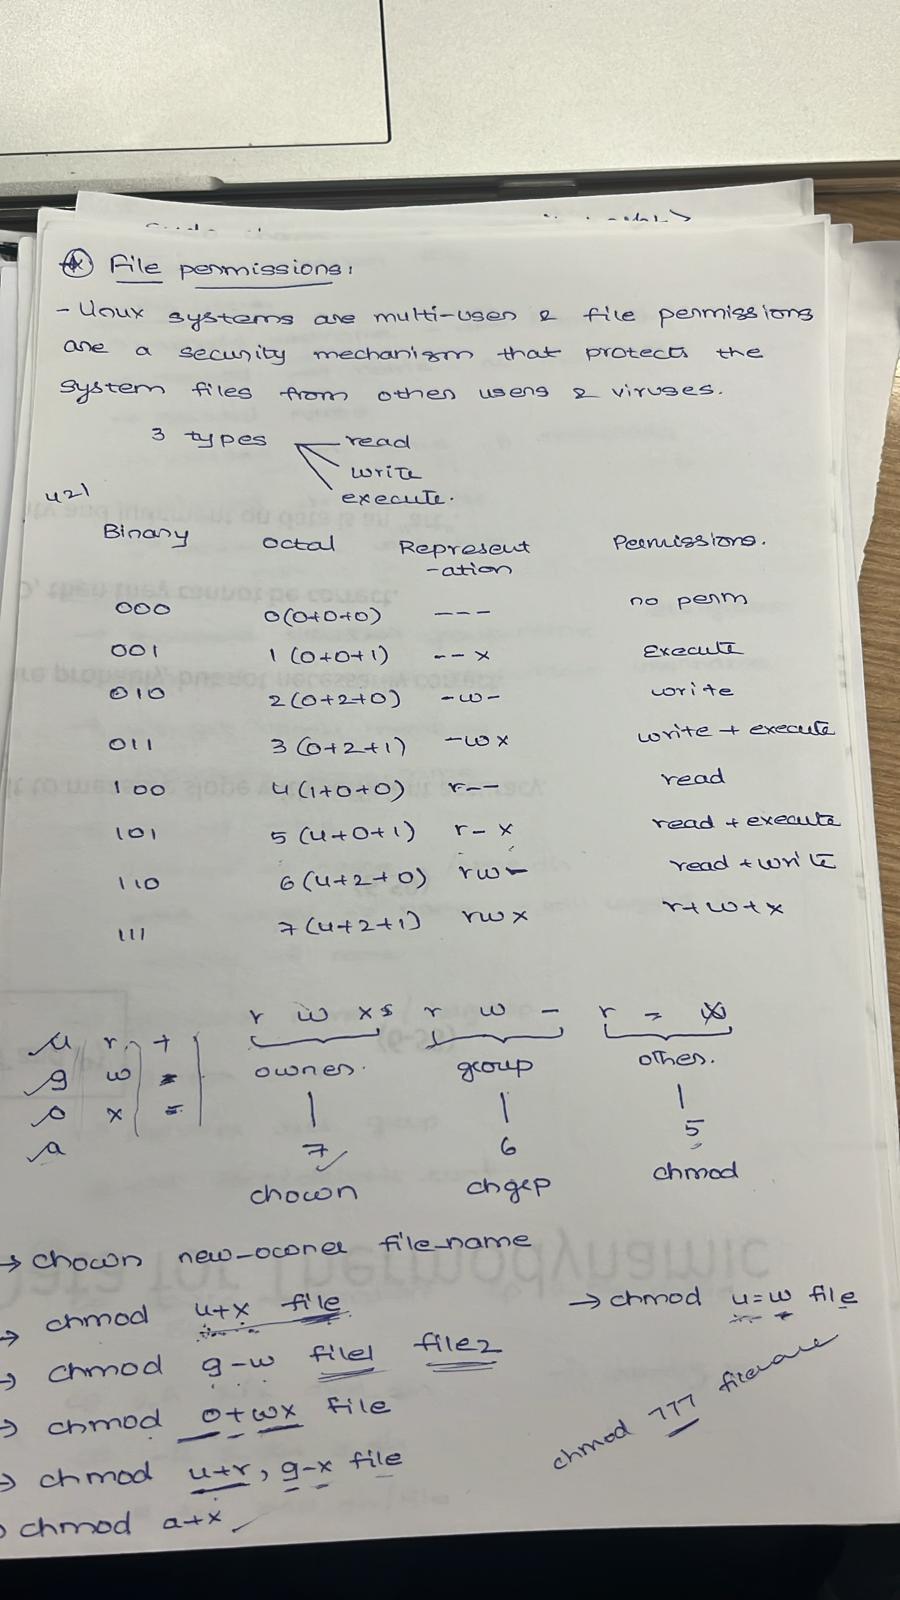 File permissions:
- Unix systems are multi-user & file permissions
are a security mechanism that protects the
system files from other users & viruses.
3 types read
write
execute.
421
Binary Octal Represent Permissions.
-ation
000 0(0+0+0) --- no perm
001 1 (0+0+1) --x Execute
010 2(0+2+0) -w- write
011 3(0+2+1) -wx write + execute
100 4(1+0+0) r-- read
101 5(4+0+1) r-x read + execute
110 6(4+2+0) rw- read + write
111 7(4+2+1) rwx r+w+x
r w x r w - r - x
u r +
g w -
o x =
a
owner. group other.
7 6 5
chown chgrp chmod
→ chown new-owner file-name
→ chmod u+x file → chmod u=w file
→ chmod g-w file1 file2
→ chmod o+wx file
chmod 777 filename
→ chmod u+r, g-x file
chmod a+x